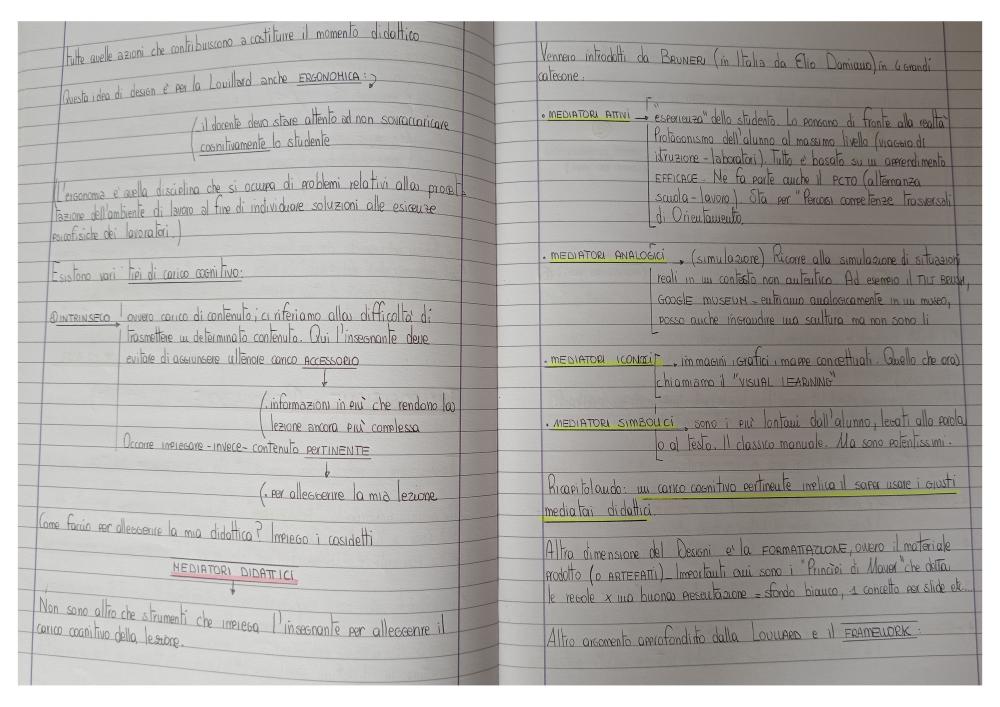 tutte quelle azioni che contribuiscono a costituire il momento didattico
Questa idea di design è per la Lourillard anche ERGONOMICA:
(il docente deve stare attento ad non sovraccaricare
cognitivamente lo studente
(L'ergonomia è quella disciplina che si occupa di problemi relativi alla proget-
tazione dell'ambiente di lavoro al fine di individuare soluzioni alle esigenze
psicofisiche dei lavoratori.)
Esistono vari tipi di carico cognitivo:
① INTRINSECO ovvero carico di contenuto; ci riferiamo alla difficoltà di
trasmettere un determinato contenuto. Qui l'insegnante deve
evitare di aggiungere ulteriore carico ACCESSORIO
(.informazioni in più che rendono la
lezione ancora più complessa
Occorre impiegare - invece - contenuto PERTINENTE
(. per alleggerire la mia lezione
Come faccio per alleggerire la mia didattica? Impiego i cosidetti
MEDIATORI DIDATTICI
Non sono altro che strumenti che impiega l'insegnante per alleggerire il
carico cognitivo della lezione.
Vennero introdotti da BRUNERI (in Italia da Elio Damiano) in 4 grandi
categorie:
. MEDIATORI ATTIVI → "esperienza" dello studente. Lo pongono di fronte alla realtà
Protagonismo dell'alunno al massimo livello (viaggio di
istruzione - laboratori). Tutto è basato su un apprendimento
EFFICACE. Ne fa parte anche il PCTO (alternanza
scuola - lavoro). Sta per "Percorsi competenze trasversali
di Orientamento.
. MEDIATORI ANALOGICI → (simulazione) Ricorre alla simulazione di situazioni
reali in un contesto non autentico. Ad esempio il TILT BRUSH,
GOOGLE MUSEUM = entriamo analogicamente in un museo,
posso anche ingrandire una scultura ma non sono lì
. MEDIATORI ICONICI → immagini, grafici, mappe concettuali. Quello che ora
chiamiamo il "VISUAL LEARNING"
. MEDIATORI SIMBOLICI → sono i più lontani dall'alunno, legati alla parola
o al testo. Il classico manuale. Ma sono potentissimi.
Ricapitolando: un carico cognitivo pertinente implica il saper usare i giusti
mediatori didattici.
Altra dimensione del Design è la FORMATTAZIONE, ovvero il materiale
prodotto (o ARTEFATTI). Importanti qui sono i "Principi di Mayer" che detta
le regole x una buona presentazione = sfondo bianco, 1 concetto per slide etc...
Altro argomento approfondito dalla LOULLARD è il FRAMEWORK: